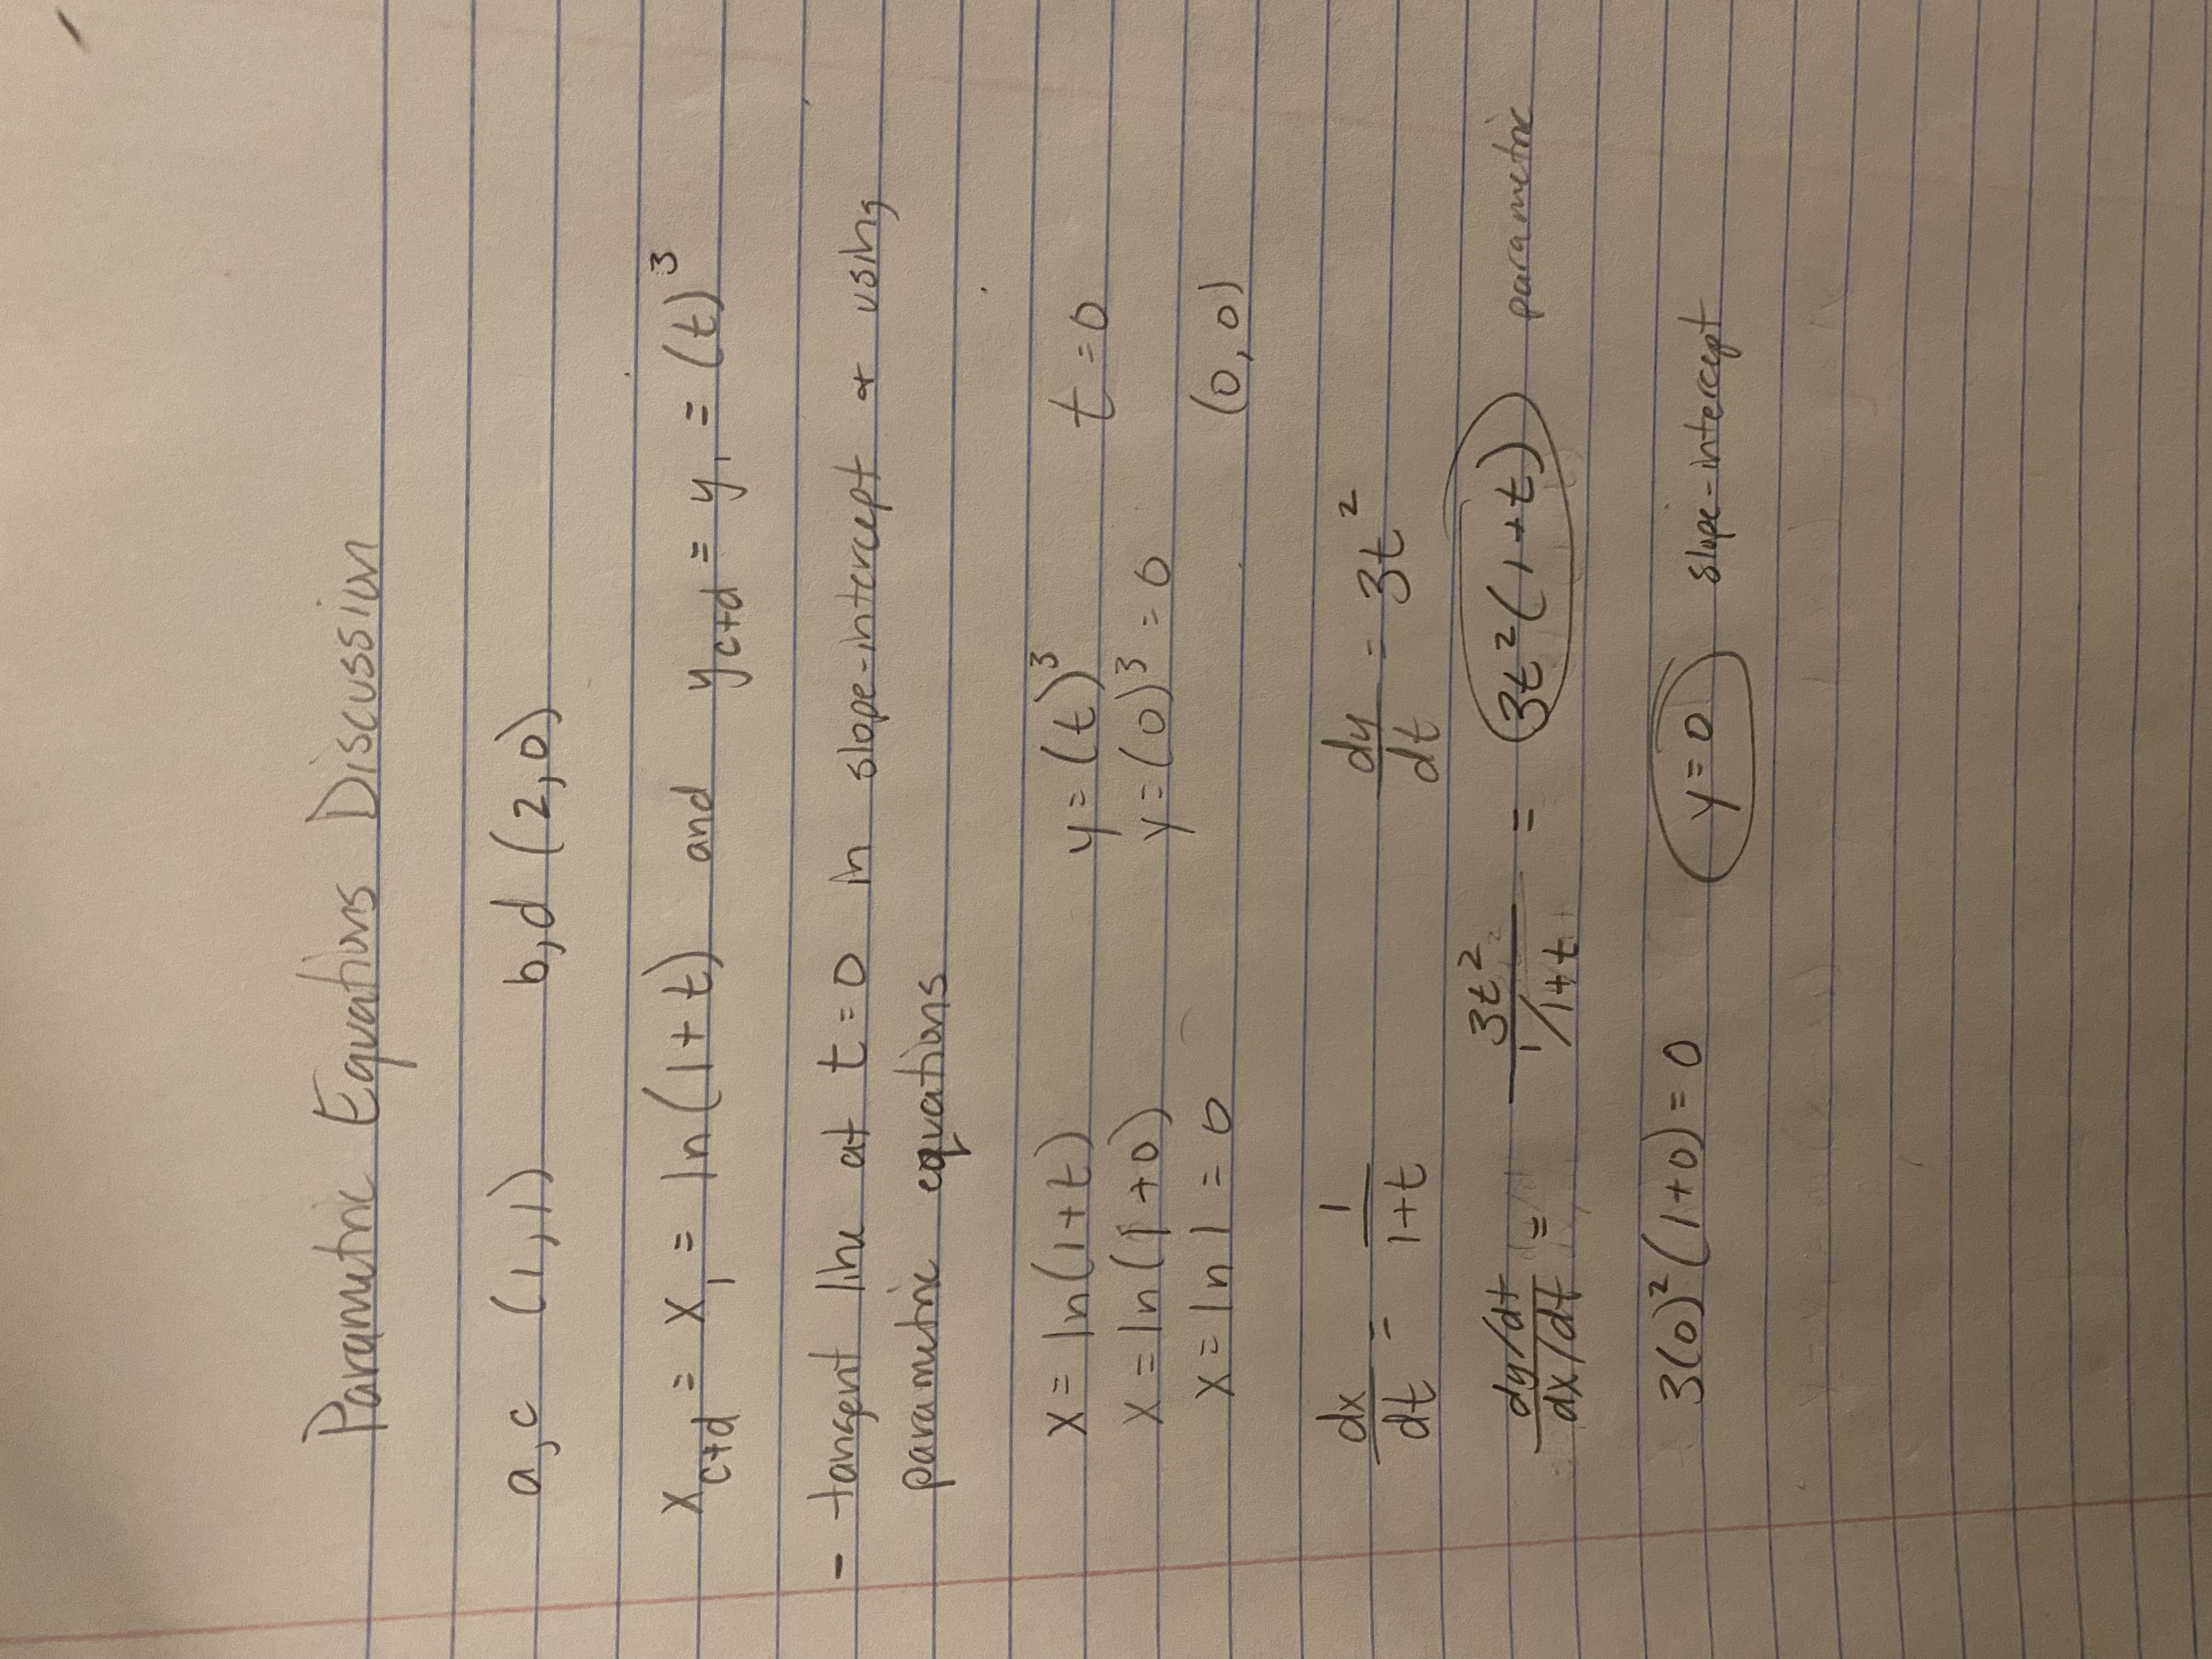 Parametric Equations Discussion
a,c (1,1) b,d (2,0)
x_{c+d} = x_1 = ln(1+t) and y_{c+d} = y_1 = (t)^3
- tangent line at t=0 in slope-intercept + using
parametric equations
x = ln(1+t) y = (t)^3 t=0
x = ln(1+0) y = (0)^3 = 0
x = ln 1 = 0 (0,0)
dx/dt = 1/(1+t) dy/dt = 3t^2
(dy/dt)/(dx/dt) = 3t^2/(1/1+t) = 3t^2(1+t) parametric
3(0)^2(1+0) = 0 y=0 slope-intercept